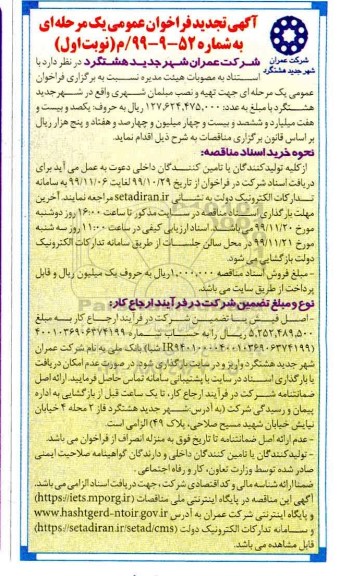 آگهی تجدید فراخوان عمومی یک مرحله ای
به شماره ۵۲-۹-۹۹/م (نوبت اول)
شرکت عمران
شهر جدید هشتگرد
شرکت عمران شهر جدید هشتگرد در نظر دارد با
استناد به مصوبات هیئت مدیره نسبت به برگزاری فراخوان
عمومی یک مرحله ای جهت تهیه و نصب مبلمان شهری واقع در شهر جدید
هشتگرد با مبلغ به عدد: ۱۲۷,۶۲۴,۴۷۵,۰۰۰ ریال به حروف: یکصد و بیست و
هفت میلیارد و ششصد و بیست و چهار میلیون و چهارصد و هفتاد و پنج هزار ریال
بر اساس قانون برگزاری مناقصات به شرح ذیل اقدام نماید.
نحوه خرید اسناد مناقصه:
از کلیه تولیدکنندگان یا تامین کنندگان داخلی دعوت به عمل می آید برای
دریافت اسناد شرکت در فراخوان از تاریخ ۹۹/۱۰/۲۹ لغایت ۹۹/۱۱/۰۶ به سامانه
تدارکات الکترونیک دولت به نشانی setadiran.ir مراجعه نمایند. آخرین
مهلت بارگذاری اسناد مناقصه در سایت مذکور تا ساعت ۱۶:۰۰ روز دوشنبه
مورخ ۹۹/۱۱/۲۰ می باشد. اسناد ارزیابی کیفی در ساعت ۱۱:۰۰ روز سه شنبه
مورخ ۹۹/۱۱/۲۱ در محل سالن جلسات از طریق سامانه تدارکات الکترونیک
دولت بازگشایی می شود.
- مبلغ فروش اسناد مناقصه ۱.۰۰۰.۰۰۰ ریال به حروف یک میلیون ریال و قابل
پرداخت از طریق سایت می باشد.
نوع و مبلغ تضمین شرکت در فرآیند ارجاع کار:
- اصل فیش یا تضمین شرکت در فرآیند ارجاع کار به مبلغ
۵,۲۵۲,۴۸۹,۵۰۰ ریال را به حساب شماره ۴۰۰۱۰۳۶۹۰۶۳۷۴۱۹۹
بانک ملی به نام شرکت عمران
شهر جدید هشتگرد واریز و در سایت بارگذاری شود. در صورت عدم امکان دریافت
یا بارگذاری اسناد در سایت با پشتیبانی سامانه تماس حاصل فرمایید. ارائه اصل
ضمانتنامه شرکت در فرآیند ارجاع کار، تا یک ساعت قبل از بازگشایی به اداره
پیمان و رسیدگی شرکت (به آدرس: شهر جدید هشتگرد فاز ۲ محله ۴ خیابان
نیایش خیابان شهید مسیح صلاحی، پلاک ۴۹) الزامی است.
- عدم ارائه اصل ضمانتنامه تا تاریخ فوق به منزله انصراف از فراخوان می باشد.
- تولیدکنندگان یا تامین کنندگان داخلی و دارندگان گواهینامه صلاحیت ایمنی
صادر شده توسط وزارت تعاون، کار و رفاه اجتماعی.
ضمنا ارائه شناسه مالی و کد اقتصادی شرکت، جهت دریافت اسناد الزامی می باشد.
آگهی این مناقصه در پایگاه اینترنتی ملی مناقصات (https://iets.mporg.ir)
و پایگاه اینترنتی شرکت عمران به آدرس www.hashtgerd-ntoir.gov.ir
و سامانه تدارکات الکترونیک دولت (https://setadiran.ir/setad/cms)
قابل مشاهده می باشد.